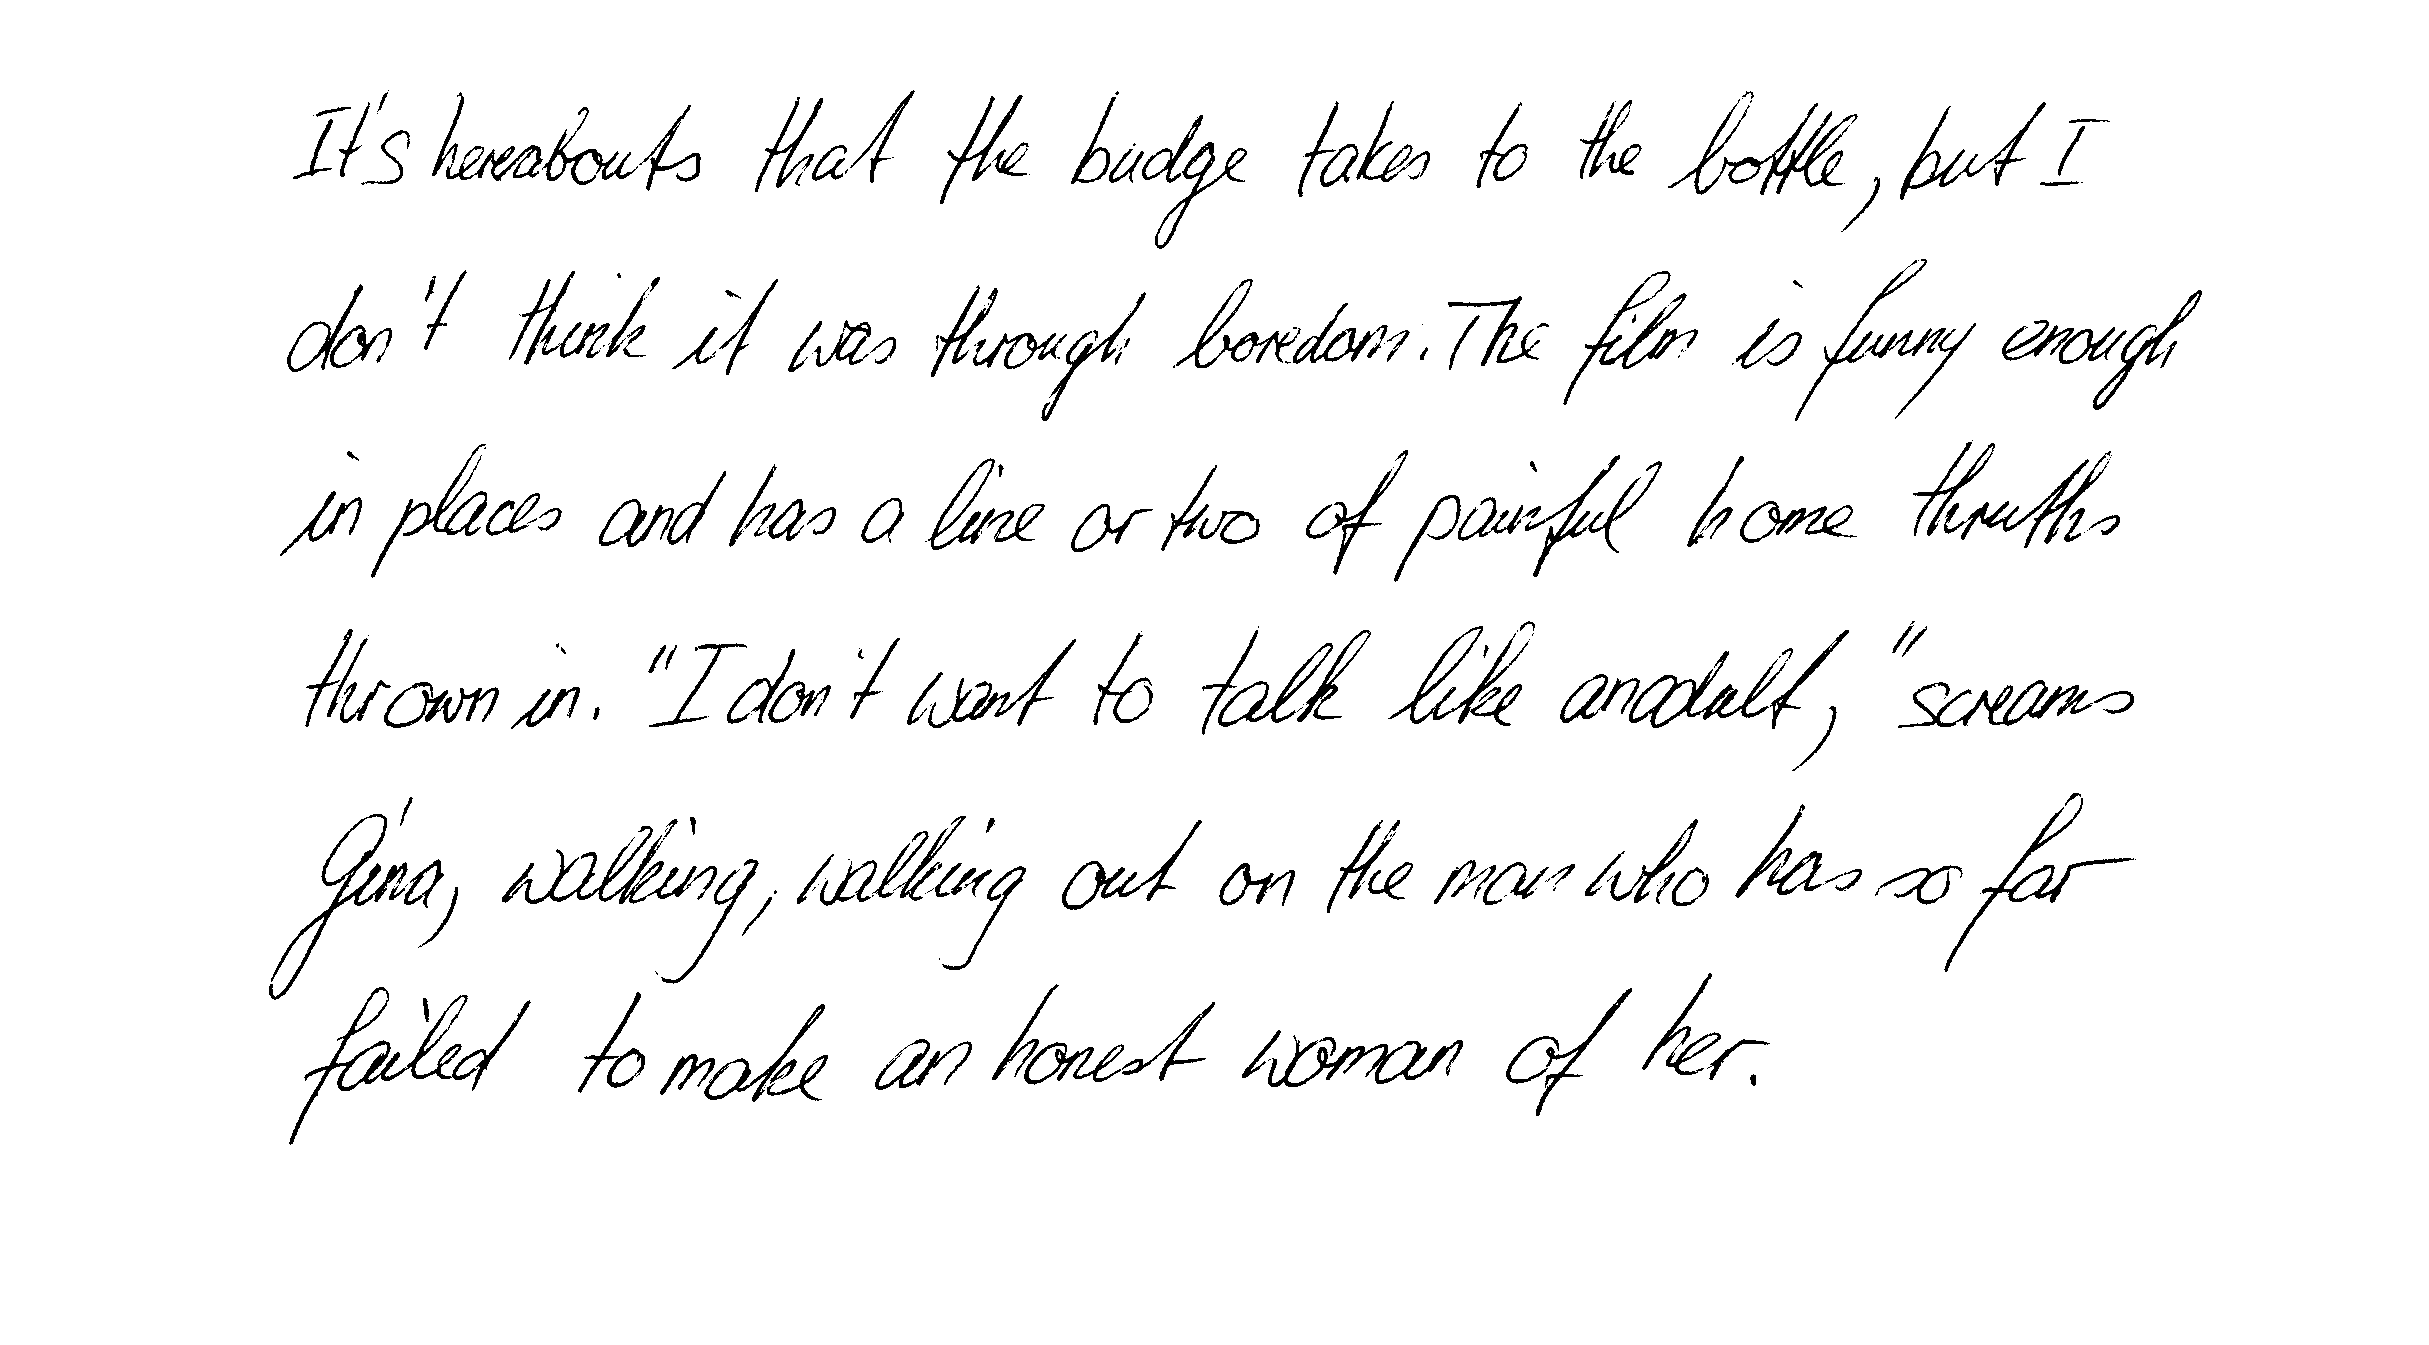 It's hereabouts that the budge takes to the bottle, but I
don't think it was through boredom. The film is funny enough
in places and has a line or two of painful home thruths
thrown in. "I don't want to talk like an adult," screams
Gina, walking, walking out on the man who has so far
failed to make an honest woman of her.